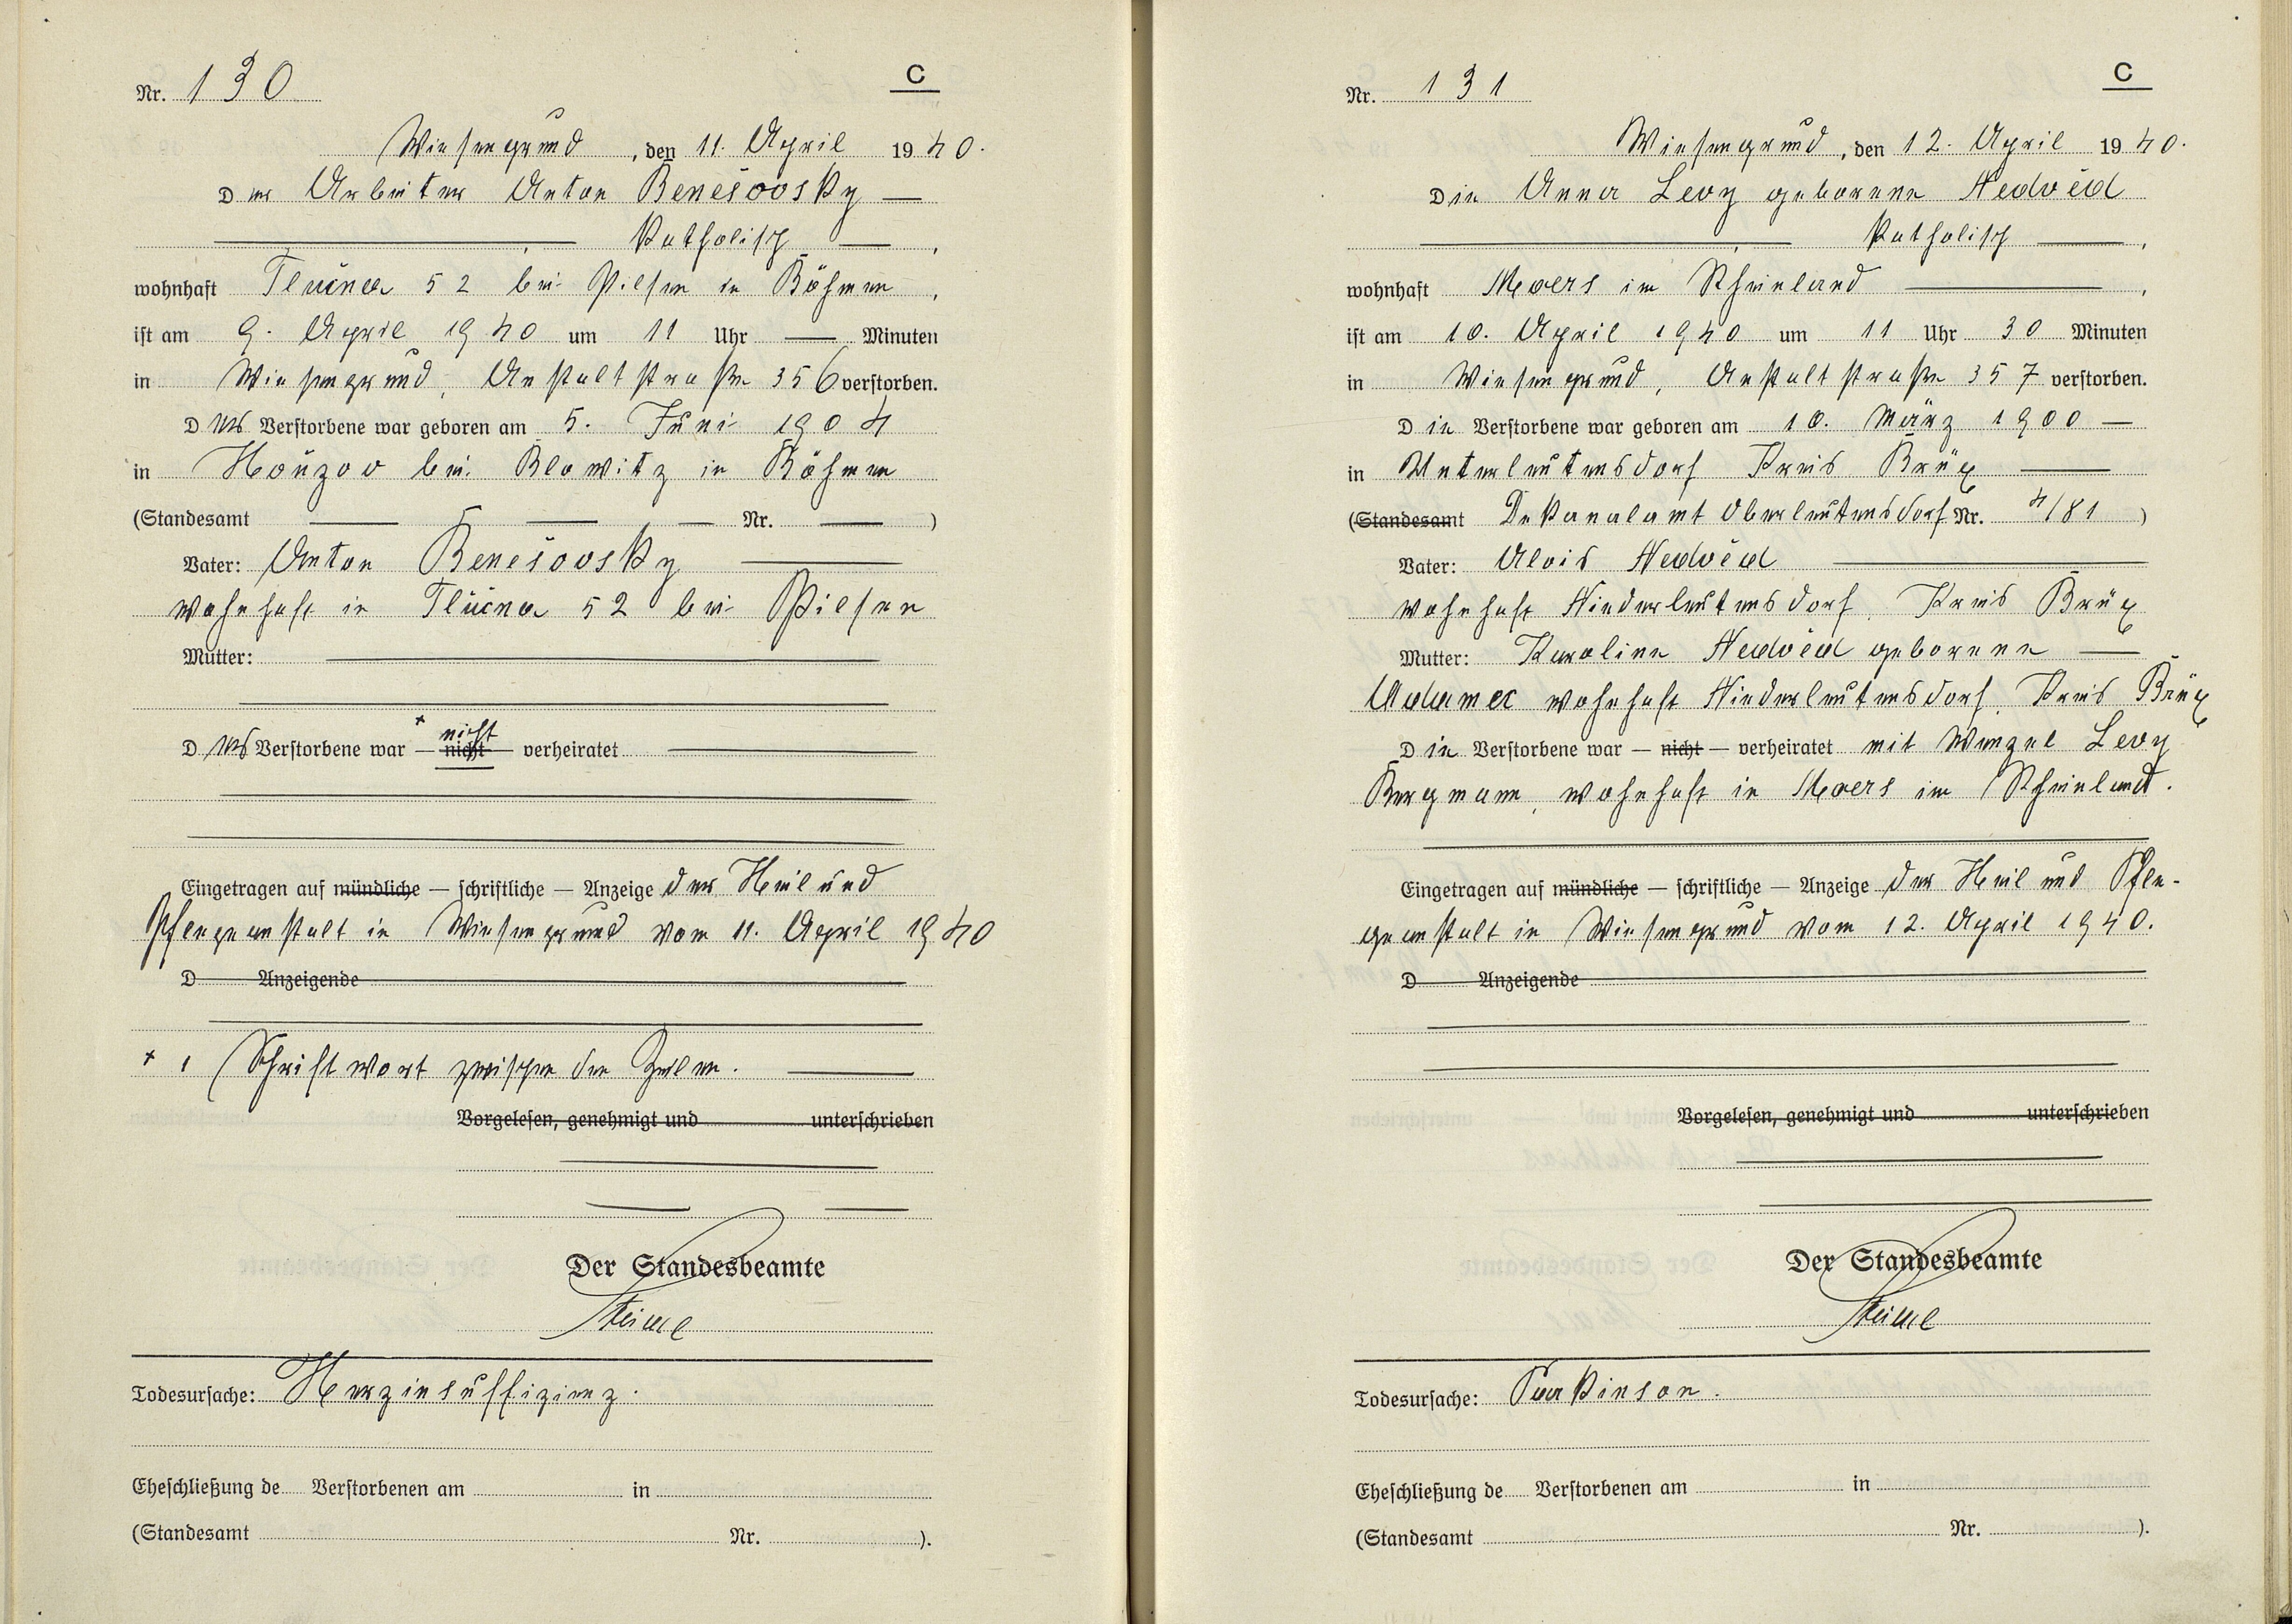 C
Nr. 130
Wiesengrund, den 11. April 1940.
Der Arbeiter Anton Benešovsky —
katholisch —,
wohnhaft Tlučna 52 bei Pilsen in Böhmen,
ist am 9. April 1940 um 11 Uhr — Minuten
in Wiesengrund, Anstaltstraße 356 verstorben.
Der Verstorbene war geboren am 5. Juni 1904
in Honzov bei Blowitz in Böhmen
(Standesamt — — — Nr. — )
Vater: Anton Benešovsky —
wohnhaft in Tlučna 52 bei Pilsen
Mutter: —
+ nicht
Der Verstorbene war — nicht — verheiratet —
Eingetragen auf mündliche — schriftliche — Anzeige der Heil und
Pflegeanstalt in Wiesengrund vom 11. April 1940
D Anzeigende
+ 1 Schriftwort zwischen den Zeilen. —
Vorgelesen, genehmigt und unterschrieben
Der Standesbeamte
Todesursache: Herzinsuffizienz.
Eheschließung de Verstorbenen am in
(Standesamt Nr. ).
C
Nr. 131
Wiesengrund, den 12. April 1940.
Die Anna Levy geborene Nedvěd
katholisch —,
wohnhaft Moers im Rheinland —,
ist am 10. April 1940 um 11 Uhr 30 Minuten
in Wiesengrund, Anstaltstraße 357 verstorben.
Die Verstorbene war geboren am 10. März 1900 —
in Unterleutensdorf Kreis Brüx —
(Standesamt Dekanalamt Oberleutensdorf Nr. 4/81 )
Vater: Alois Nedvěd —
wohnhaft Niederleutensdorf, Kreis Brüx
Mutter: Karoline Nedvěd geborene —
Adamec wohnhaft Niederleutensdorf, Kreis Brüx
Die Verstorbene war — nicht — verheiratet mit Wenzel Levy
Bergmann, wohnhaft in Moers im Rheinland.
Eingetragen auf mündliche — schriftliche — Anzeige der Heil und Pfle-
geanstalt in Wiesengrund vom 12. April 1940.
D Anzeigende
Vorgelesen, genehmigt und unterschrieben
Der Standesbeamte
Todesursache: Parkinson.
Eheschließung de Verstorbenen am in
(Standesamt Nr. ).